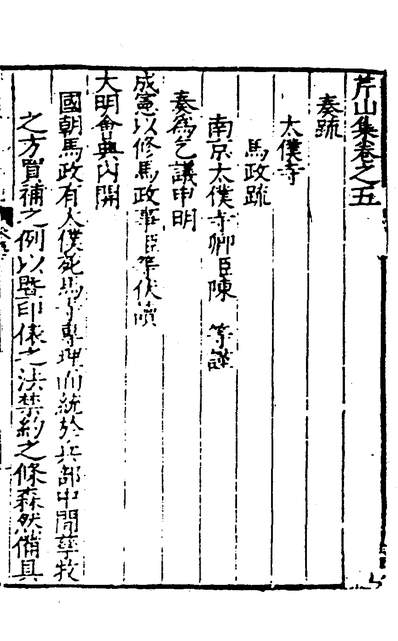 芹山集卷之五
奏疏
太僕寺
馬政疏
南京太僕寺卿臣陳 等謹
奏為乞議申明
成憲以修馬政事臣等伏讀
大明會典內開
國朝馬政有太僕苑馬寺專理而統於兵部中間孳牧
之方買補之例以暨印俵之法禁約之條森然備具